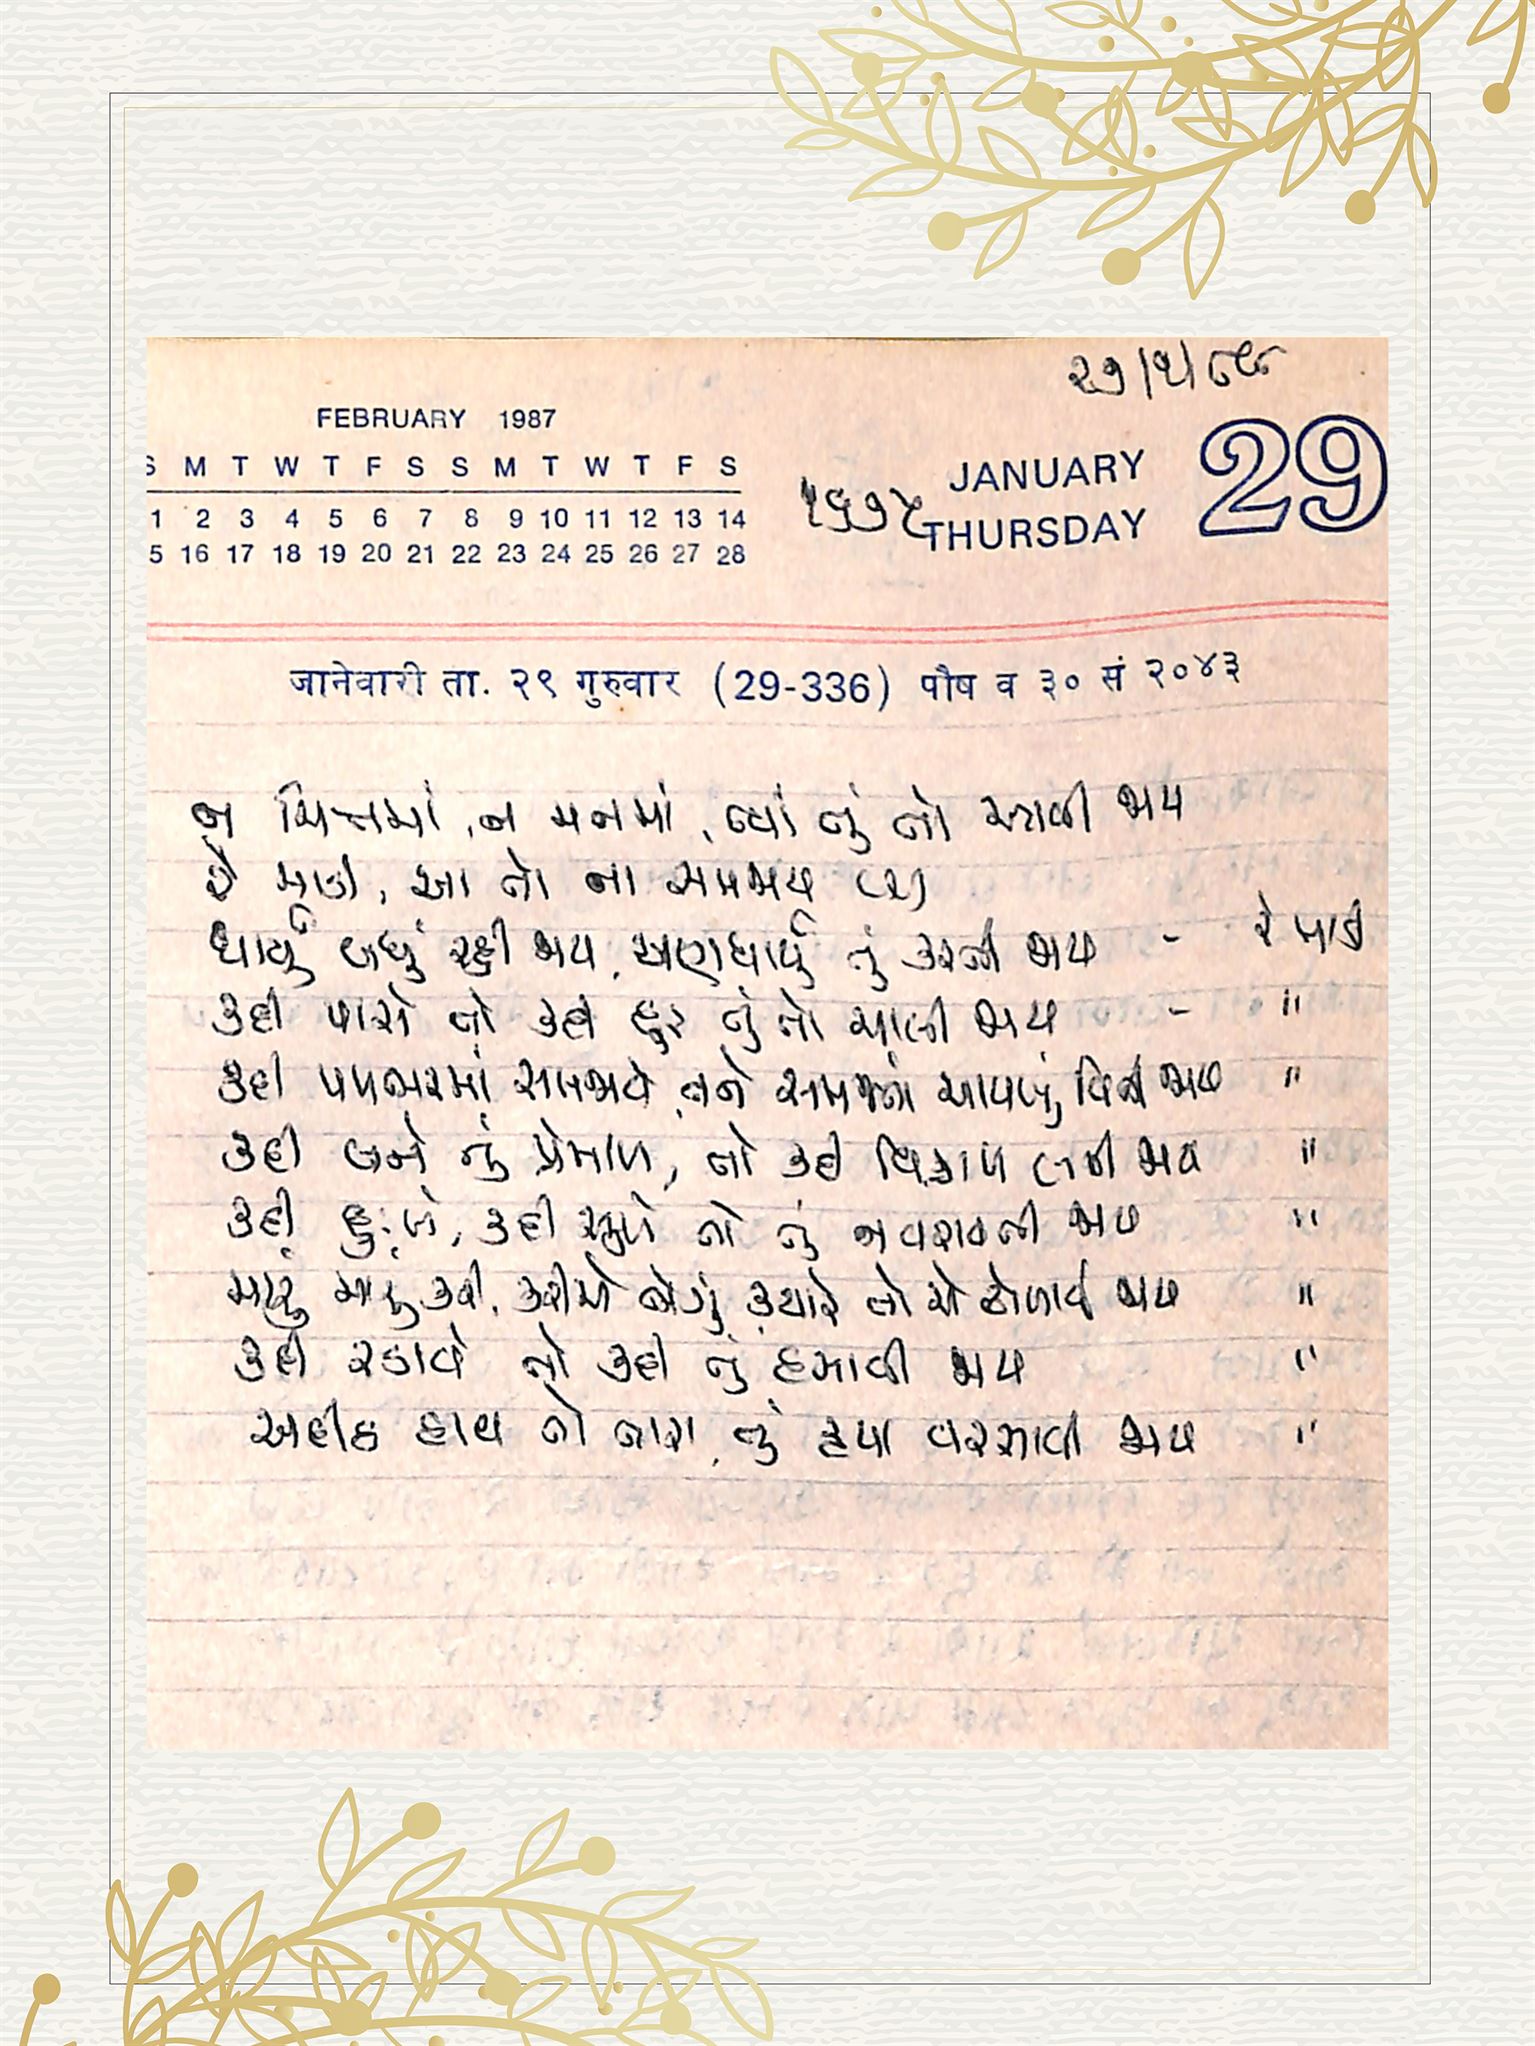 ૨૭/૧/૮૯
FEBRUARY 1987
S M T W T F S S M T W T F S
1 2 3 4 5 6 7 8 9 10 11 12 13 14
5 16 17 18 19 20 21 22 23 24 25 26 27 28
JANUARY 29
૧૬૭૫ THURSDAY
जानेवारी ता. २९ गुरुवार (29-336) पौष व ३० सं २०४३
ન ચિત્તમાં, ન મનમાં, ત્યાં તું તો આવી જાય
રે માડી, આ તો ના સમજાય (૨)
ધાર્યું બધું રહી જાય, અણધાર્યું તું કરતી જાય - રે માડી
કદી પાસે તો કદી દૂર તું તો ચાલી જાય - "
કદી પળભરમાં સમજાવે, તને સમજતાં આયખું વિતી જાય "
કદી બને તું પ્રેમાળ, તો કદી વિકરાળ બની જાય "
કદી દુઃખે, કદી સુખે તો તું નવરાવતી જાય "
મારું મારું કરી, કરીએ ભેગું, ક્યારે તો એ ઢોળાઈ જાય "
કદી રડાવે તો કદી તું હસાવી જાય "
અદીઠ હાથ તો તારા, તું કૃપા વરસાવી જાય "